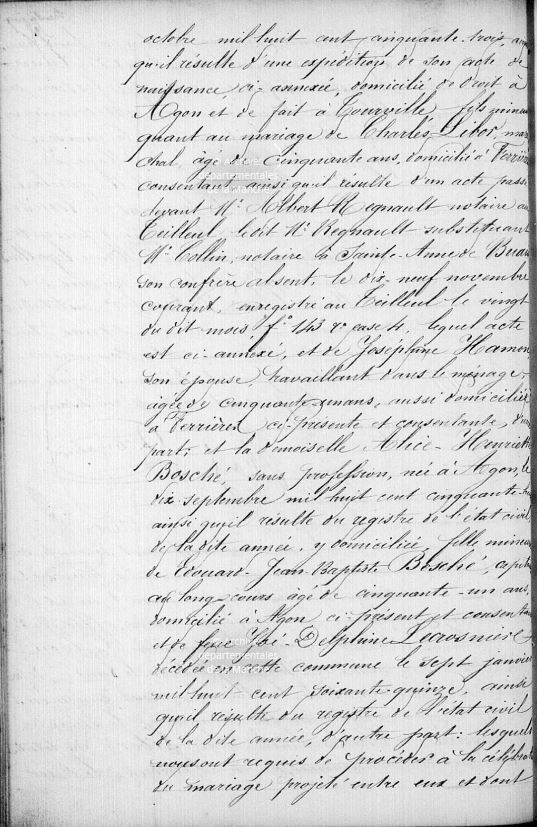 octobre mil huit cent cinquante trois, ainsi
qu'il résulte d'une expédition de son acte de
naissance ci-annexée, domicilié de droit à
Agon et de fait à Tourville, fils mineur
quant au mariage de Charles Libor, maré
chal, âgé de cinquante ans, domicilié à Ferrières
consentant ainsi qu'il résulte d'un acte passé
devant Me Albert Regnault notaire au
Teilleul, ledit Me Regnault substituant
Me Collin, notaire à Sainte-Anne de Buais
son confrère absent, le dix neuf novembre
courant, enregistré au Teilleul le vingt
du dit mois, fo 143 ro case 4, lequel acte
est ci-annexé, et de Joséphine Hamon
son épouse, travaillant dans le ménage,
âgée de cinquante ans, aussi domiciliée
à Ferrières ci-présente et consentante, d'une
part; et la demoiselle Alice-Henriette
Bosché, sans profession, née à Agon, le
dix septembre mil huit cent cinquante
ainsi qu'il résulte du registre de l'état civil
de la dite année, y domiciliée, fille mineure
de Edouard-Jean-Baptiste Bosché, capitaine
au long-cours âgé de cinquante-un ans,
domicilié à Agon ci-présent et consentant
et de feue Delphine Lecrosnier
décédée en cette commune le sept janvier
mil huit cent soixante-quinze, ainsi
qu'il résulte du registre de l'état civil
de la dite année, d'autre part: lesquels
nous ont requis de procéder à la célébration
du mariage projeté entre eux et dont